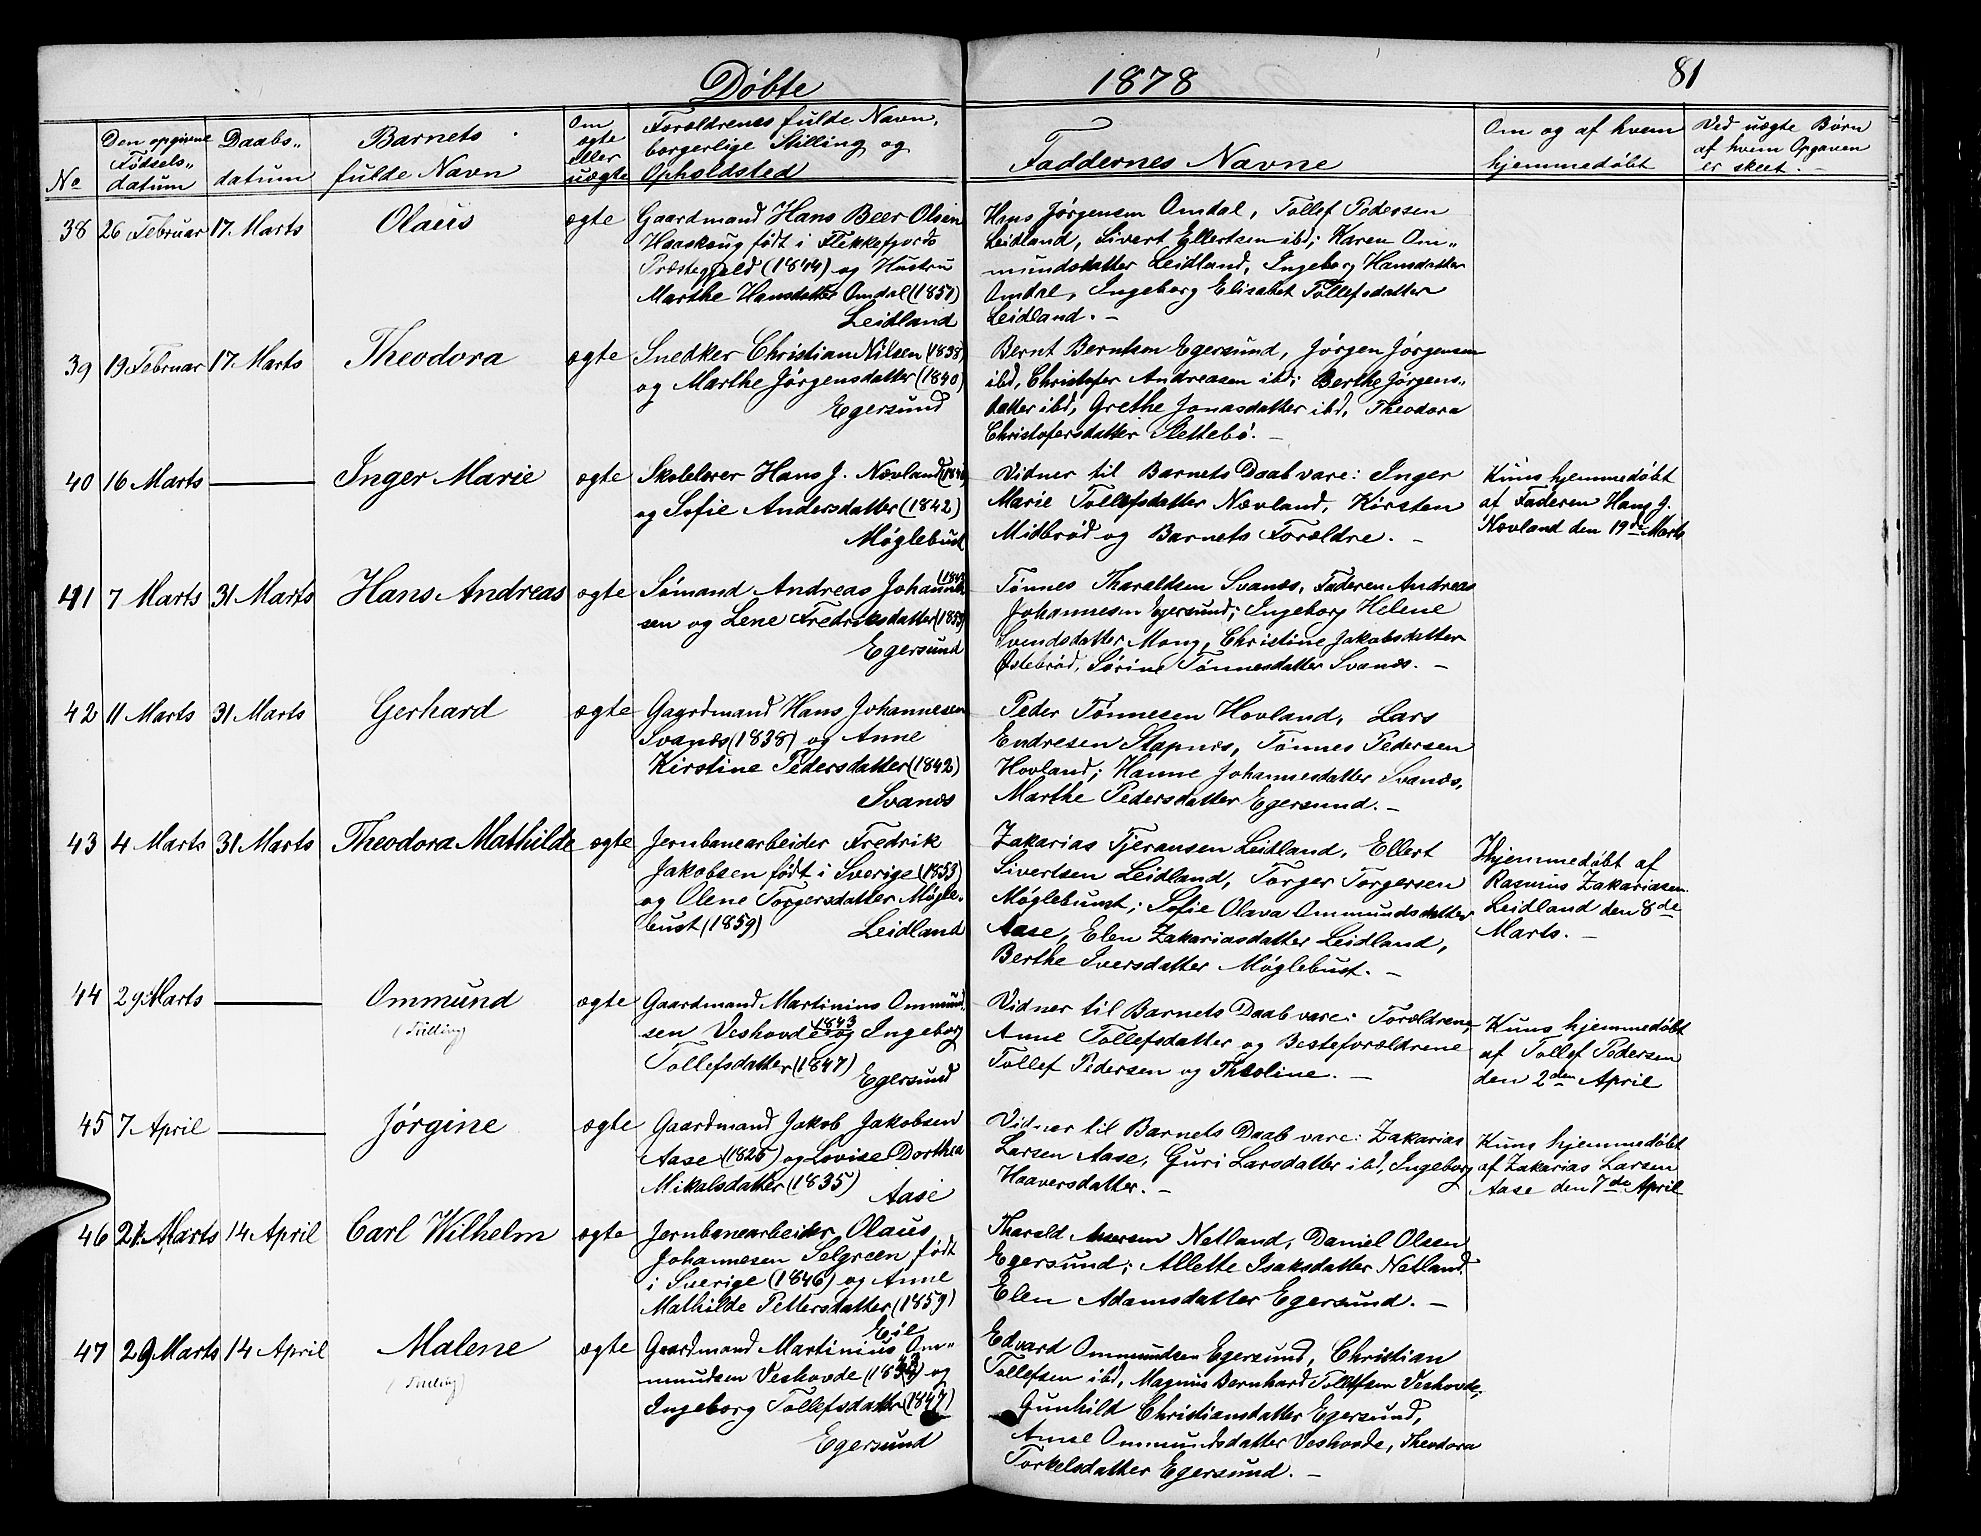 Døbte 1878 81
No
Den opgivne Fødsels-datum
Daabs-datum
Barnets fulde Navn
Om ægte eller uægte
Forældrenes fulde Navn, borgerlige Stilling og Opholdsted
Faddernes Navne
Om og af hvem hjemmedøbt
Ved uægte Børn af hvem Opgaven er skeet. -
38 26 Februar 17 Marts Olaus ægte
Gaardmand Hans Beer Olsen
Haaskaug født i Flekkefjords
Præstegjeld (1844) og Hustru
Marthe Hansdatter Omdal (1857)
Leidland
Hans Jørgensen Omdal, Tollef Pedersen
Leidland, Sivert Ellertsen ibd; Karen Om-
mundsdatter Leidland, Ingeborg Hansdatter
Omdal, Ingeborg Elisabet Tollefsdatter
Leidland. -
39 19 Februar 17 Marts Theodora ægte
Snedker Christian Nilsen (1838)
og Marthe Jørgensdatter (1840)
Egersund
Bernt Berntsen Egersund, Jørgen Jørgensen
ibd, Christofer Andreasen ibd; Berthe Jørgens-
datter ibd, Grethe Jonasdatter ibd, Theodora
Christofersdatter Slettebø. -
40 16 Marts — Inger Marie ægte
Skolelærer Hans J. Nævland
og Sofie Andersdatter (1842)
Møglebust
Vidner til Barnets Daab vare: Inger
Marie Tollefsdatter Nævland, Kirsten
Midbrød og Barnets Forældre. -
Kuns hjemmedøbt
af Faderen Hans J.
Nævland den 19de Marts
41 7 Marts 31 Marts Hans Andreas ægte
Sømand Andreas Johanne-
sen og Lene Fredriksdatter (1853)
Egersund
Tønnes Tharaldsen Svanæs, Faderen Andreas
Johannesen Egersund; Ingeborg Helene
Svendsdatter Mong, Christine Jakobsdatter
Østebrød, Sørine Tønnesdatter Svanæs. -
42 11 Marts 31 Marts Gerhard ægte
Gaardmand Hans Johannesen
Svanæs (1838) og Anne
Kirstine Pedersdatter (1842)
Svanæs
Peder Tønnesen Hovland, Lars
Endresen Stapnæs, Tønnes Pedersen
Hovland; Hanne Johannesdatter Svanæs,
Marthe Pedersdatter Egersund. -
43 4 Marts 31 Marts Theodora Mathilde ægte
Jernbanearbeider Fredrik
Jakobsen født i Sverige (1853)
og Olene Torgersdatter Møgle-
bust (1859) Leidland
Zakarias Tjeransen Leidland, Ellert
Sivertsen Leidland, Torger Torgersen
Møglebust; Sofie Olava Ommundsdatter
Aase, Elen Zakariasdatter Leidland,
Berthe Iversdatter Møglebust. -
Hjemmedøbt af
Rasmus Zakariasen
Leidland den 8de
Marts. -
44 29 Marts — Ommund ægte
(Tvilling)
Gaardmand Martinius Ommund-
sen Veshovde 1843 og Ingeborg
Tollefsdatter (1847)
Egersund
Vidner til Barnets Daab vare: Forældrene,
Anne Tollefsdatter og Besteforældrene
Tollef Pedersen og Theoline. -
Kuns hjemmedøbt
af Tollef Pedersen
den 2den April
45 7 April — Jørgine ægte
Gaardmand Jakob Jakobsen
Aase (1825) og Lovise Dorthea
Mikalsdatter (1835)
Aase
Vidner til Barnets Daab vare: Zakarias
Larsen Aase, Guri Larsdatter ibd, Ingeborg
Haaversdatter. -
Kuns hjemmedøbt
af Zakarias Larsen
Aase den 7de April
46 21 Marts 14 April Carl Wilhelm ægte
Jernbanearbeider Olaus
Johannesen Selgreen født
i Sverige (1846) og Anne
Mathilde Pettersdatter (1859)
Eie
Tharald Netland, Daniel Olsen
Egersund; Allette Isaksdatter Netland
Elen Adamsdatter Egersund. -
47 29 Marts 14 April Malene ægte
(Tvilling)
Gaardmand Martinius Om-
mundsen Veshovde og
Ingeborg Tollefsdatter (1847)
Egersund
Edvard Ommundsen Egersund, Christian
Tollefsen ibd, Magnus Bernhard Tollefsen Veshovde;
Gunhild Christiansdatter Egersund,
Anne Ommundsdatter Veshovde, Theodora
Torkelsdatter Egersund. -